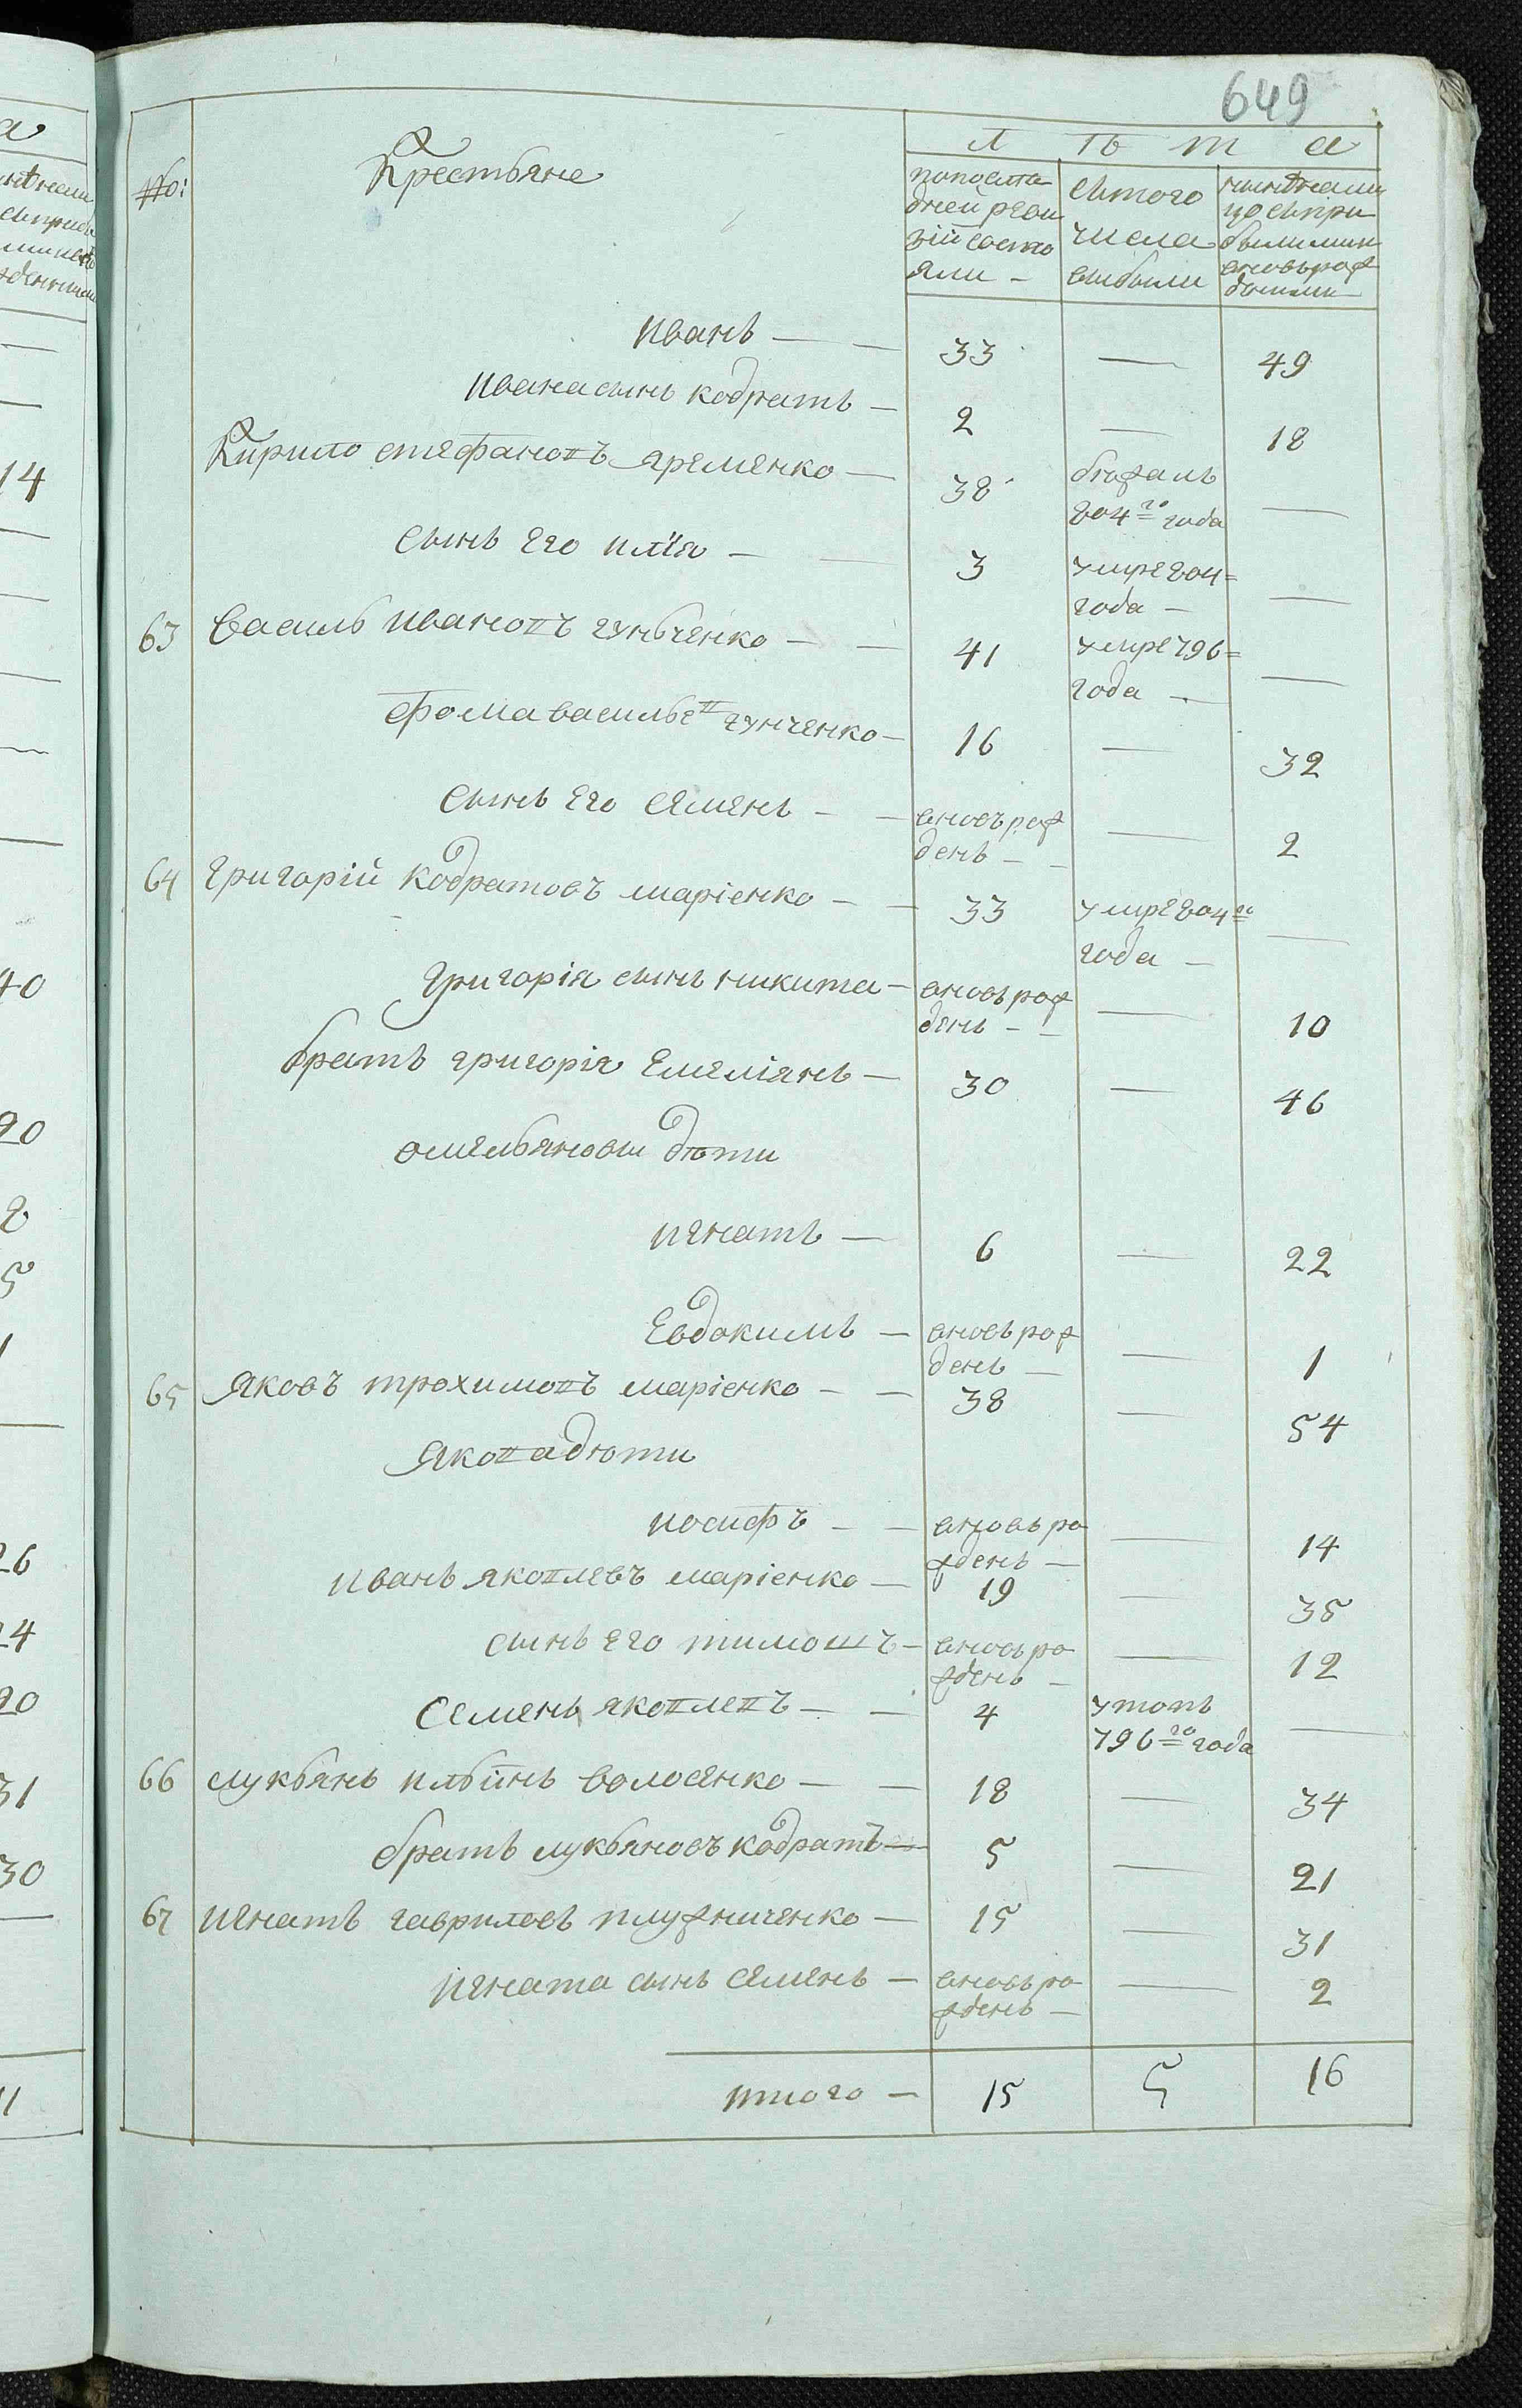 649
№: Крестьяне
Л ѣ т а
попослѣ дней реви зіи состо яли –
ситого числа выбыли
ныне налицо сыпри былыми и вновь рож денными
Иванъ — — 33 — 49
Ивана сынъ кодратъ — 2 — 18
Кирило стефановъ яременко — 38 бѣжалъ 804го года —
сынъ его илія — — 3 умре 804 = года — —
63 Василь ивановъ гуньченко — — 41 умре 796 = года — —
фома васильев гунченко — 16 — 32
сынъ его семенъ — — вновь рож денъ — — — 2
64 Григорій кодратовъ маріенко — — 33 умре 804го года — —
Григорія сынъ никита — вновь рож денъ — — — 10
братъ григорія емеліянъ — 30 — 46
омельяновы дѣти
игнатъ — 6 — 22
Евдокимъ — вновь рож денъ — — 1
65 Яковъ трохимовъ маріенко — — 38 — 54
Якова дѣти
иосифъ — — вновь ро жденъ — — 14
иванъ яковлевъ маріенко — 19 — 35
сынъ его тимошъ — вновь ро жденъ — — 12
Семенъ яковлевъ — — 4 утопъ 796го года —
66 лукьянъ ильинъ волосенко — — 18 — 34
братъ лукьяновъ кодратъ — 5 — 21
67 игнатъ гавриловъ плужниченко — 15 — 31
игната сынъ семенъ — вновь ро жденъ — — 2
итого — 15 5 16
14
40
20
2
5
1
26
24
20
31
30
11